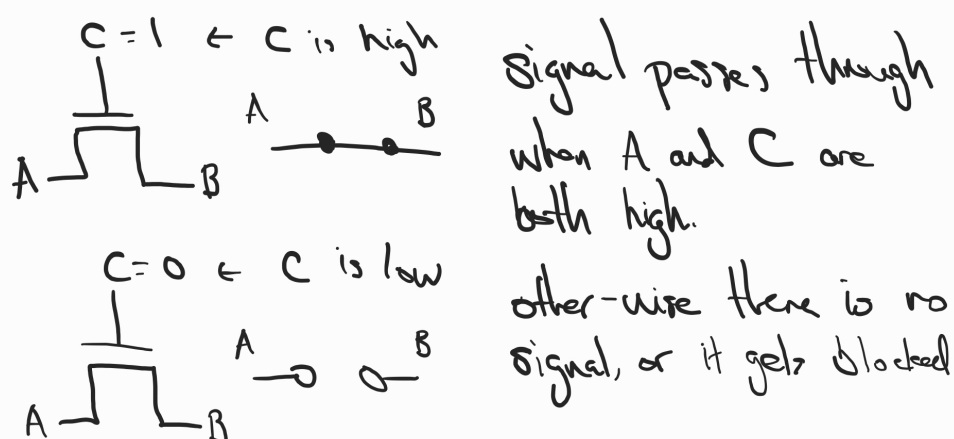 C = 1 ← C is high
A B
A B
C = 0 ← C is low
A B
A B
signal passes through
when A and C are
both high.
other-wise there is no
signal, or it gets blocked